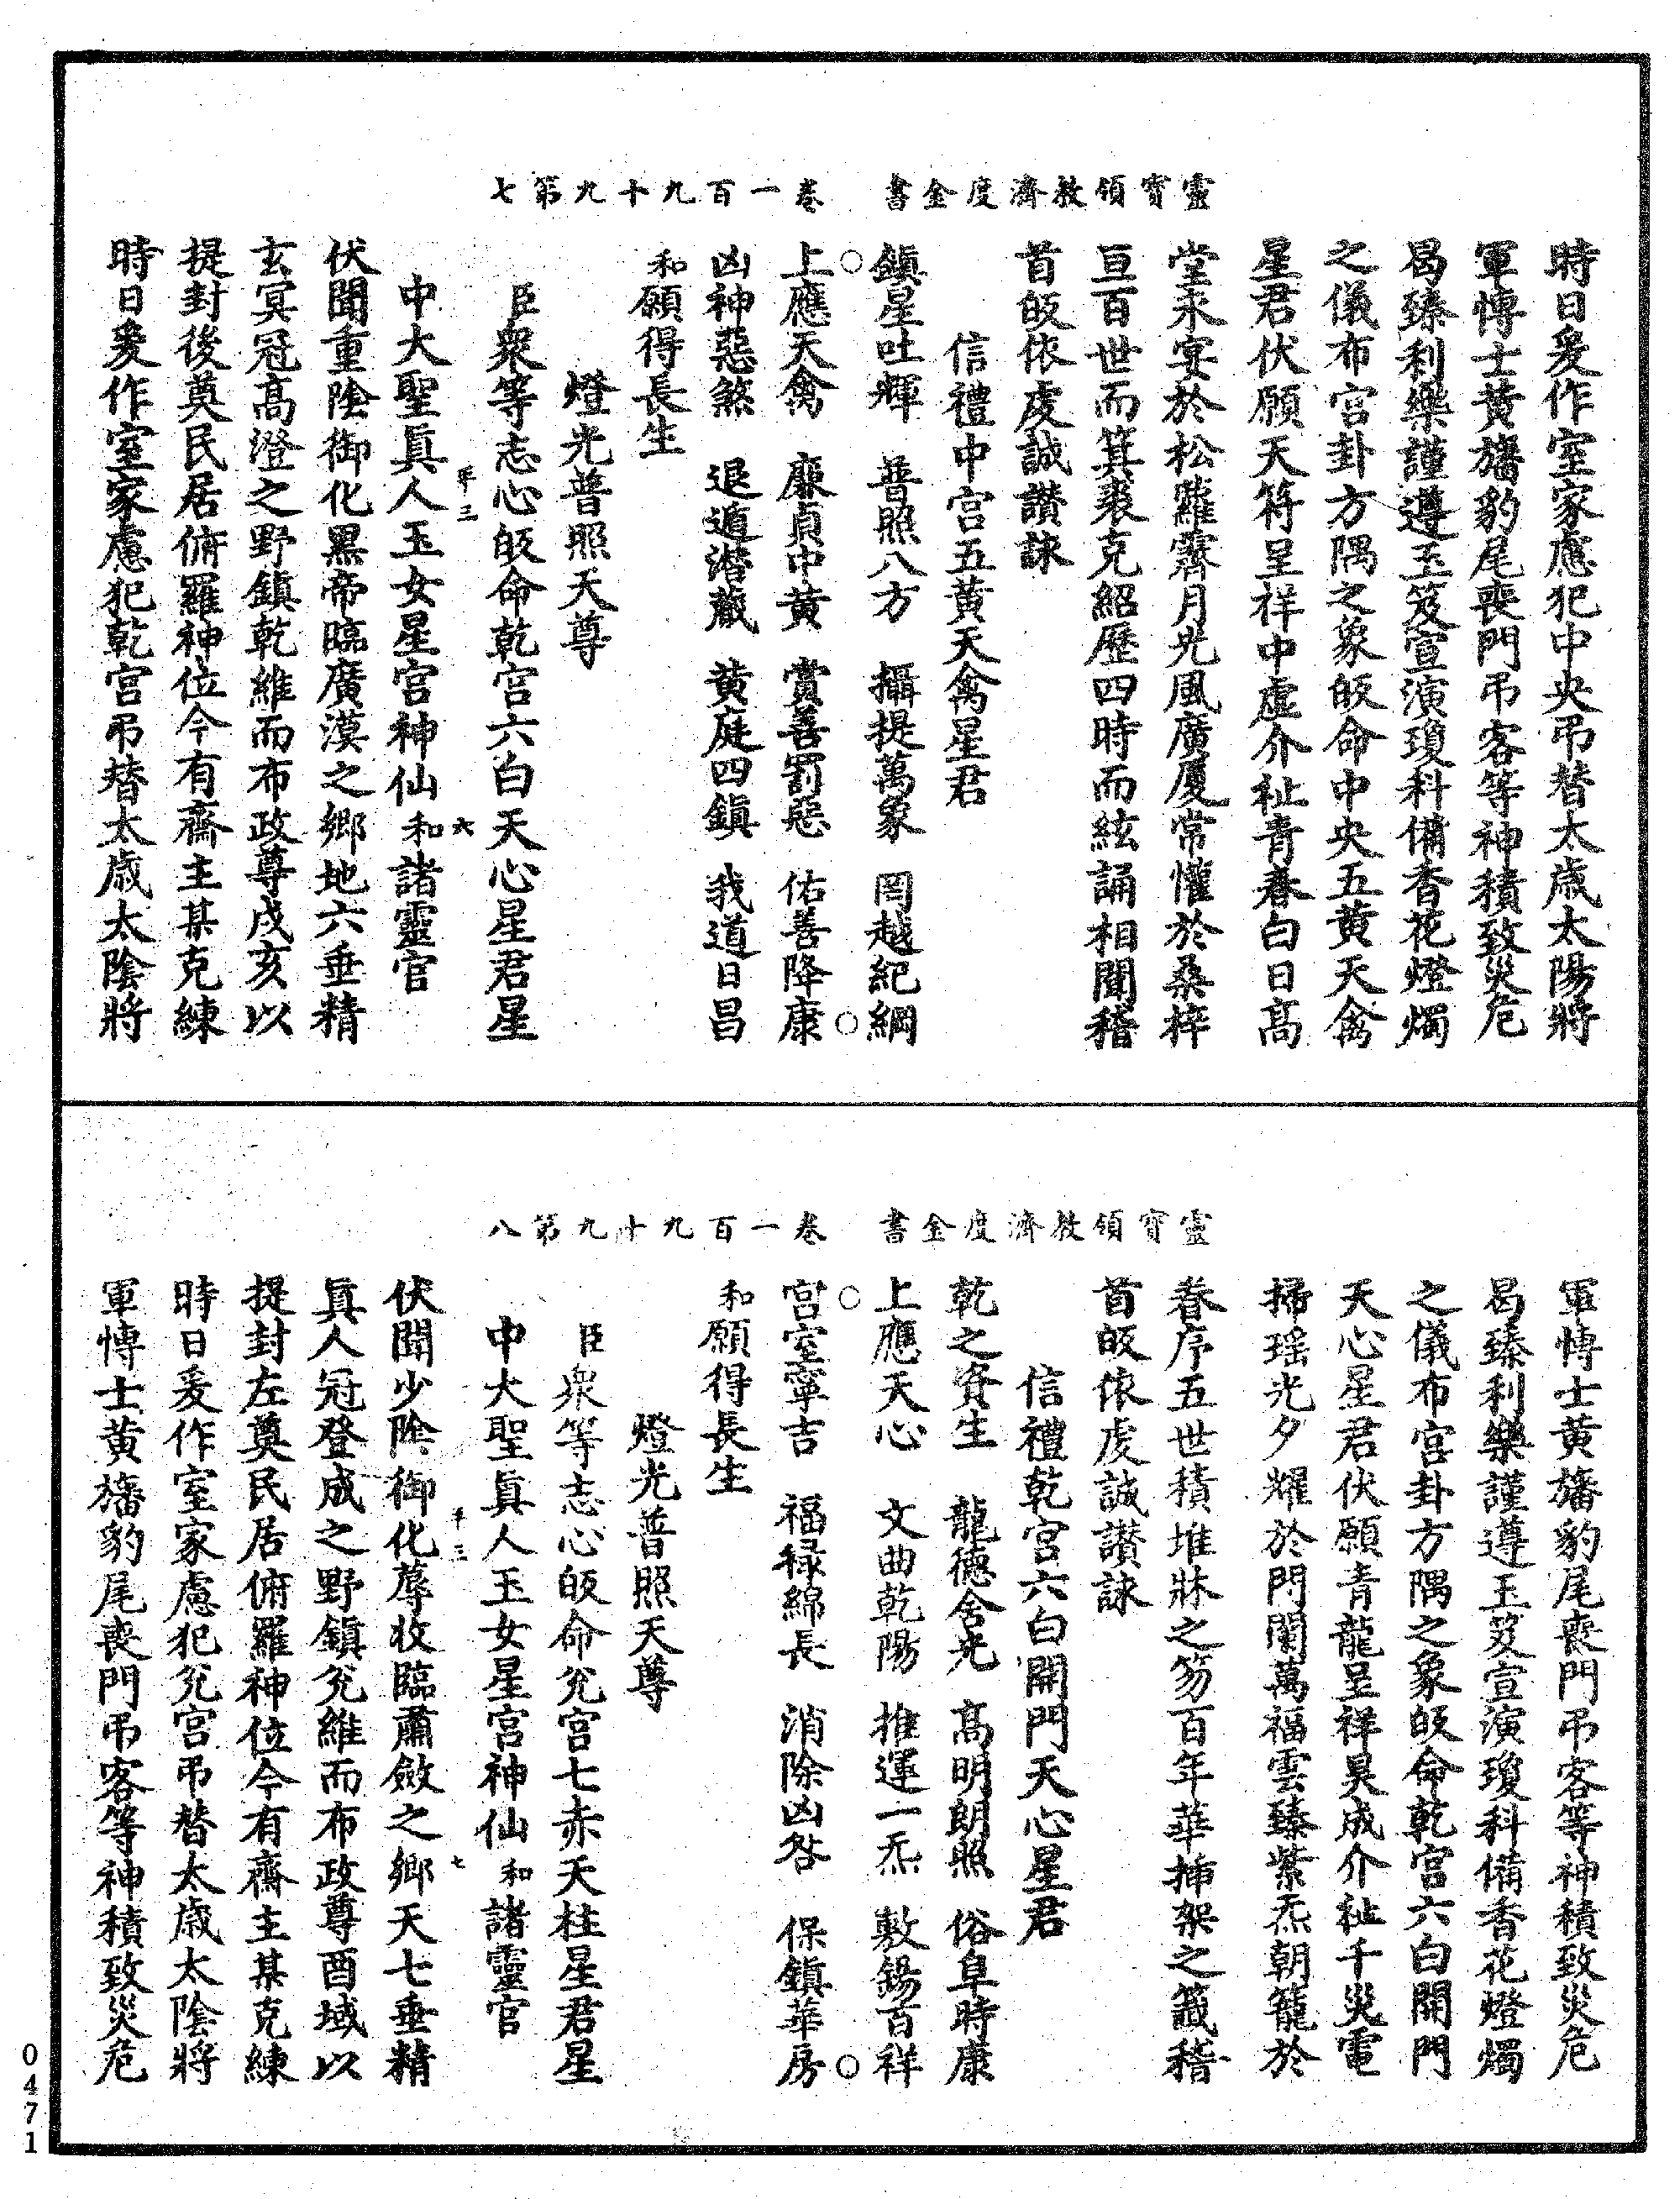 靈寶領教濟度金書　卷一百九十九第七
時日爰作室家應犯中央弔替太歲太陽將
軍愽士黄旛豹尾喪門弔客等神積致災危
曷臻利樂謹遵玉笈宣演瓊科備香花燈燭
之儀布宫卦方隅之象皈命中央五黄天禽
星君伏願天符呈祥中虚介祉青春白日高
堂永宴於松蘿霽月光風廣厦常懽於桑梓
亘百世而箕裘克紹歷四時而絃誦相聞稽
首皈依虔誠讃詠
信禮中宫五黄天禽星君
鎮星吐輝　普照八方　攝提萬象　罔越紀綱
○上應天禽　廉貞中黄　賞善罰惡　佑善降康○
凶神惡煞　退遁潛藏　黄庭四鎮　我道日昌
和願得長生
燈光普照天尊
臣衆等志心皈命乾宫六白天心星君星
中大聖眞人玉女星宫神仙和諸靈官
伏聞重陰御化黑帝臨廣漠之鄉地六垂精
玄冥冠高澄之野鎮乾維而布政尊戌亥以
提封後奠民居俯羅神位今有齋主某克練
時日爰作室家慮犯乾宫弔替太歲太陰將
靈寶領教濟度金書　卷一百九十九第八
軍愽士黄旛豹尾喪門弔客等神積致災危
曷臻利樂謹遵玉笈宣演瓊科備香花燈燭
之儀布宫卦方隅之象皈命乾宫六白開門
天心星君伏願青龍呈祥昊成介祉千災電
掃瑶光夕耀於門闌萬福雲臻紫炁朝籠於
春序五世積堆牀之笏百年華插架之籤稽
首皈依虔誠讃詠
信禮乾宫六白開門天心星君
乾之資生　龍德含光　高明朗照　俗阜時康
上應天心　文曲乾陽　推運一炁　敷錫百祥
○宫室寧吉　福禄綿長　消除凶咎　保鎮華房○
和願得長生
燈光普照天尊
臣衆等志心皈命兊宫七赤天柱星君星
中大聖眞人玉女星宫神仙和諸靈官
伏聞少陰御化蓐收臨肅斂之鄉天七垂精
眞人冠登成之野鎮兊維而布政尊酉域以
提封左奠民居俯羅神位今有齋主某克練
時日爰作室家慮犯兊宫弔替太歲太陰將
軍愽士黄旛豹尾喪門弔客等神積致災危
0471